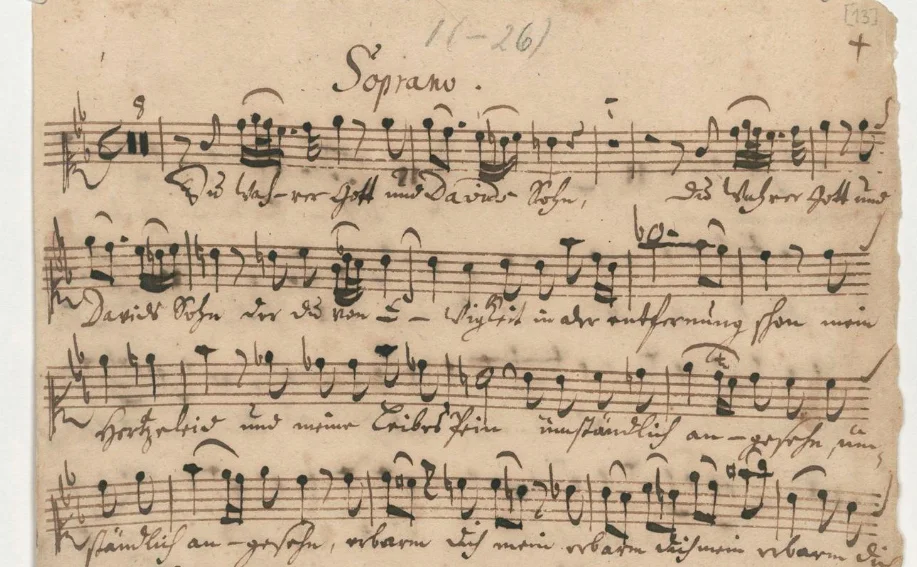 1(-26)
[13]
Soprano.
8
Du wah-rer Gott und Davids Sohn, Du wahrer Gott und
Davids Sohn der du von E - wigkeit in der entfernung schon mein
Hertzeleid und meine Leibes Pein umständlich an-gesehn, um-
ständlich an-gesehn, erbarm dich mein erbarm dich mein erbarm dich